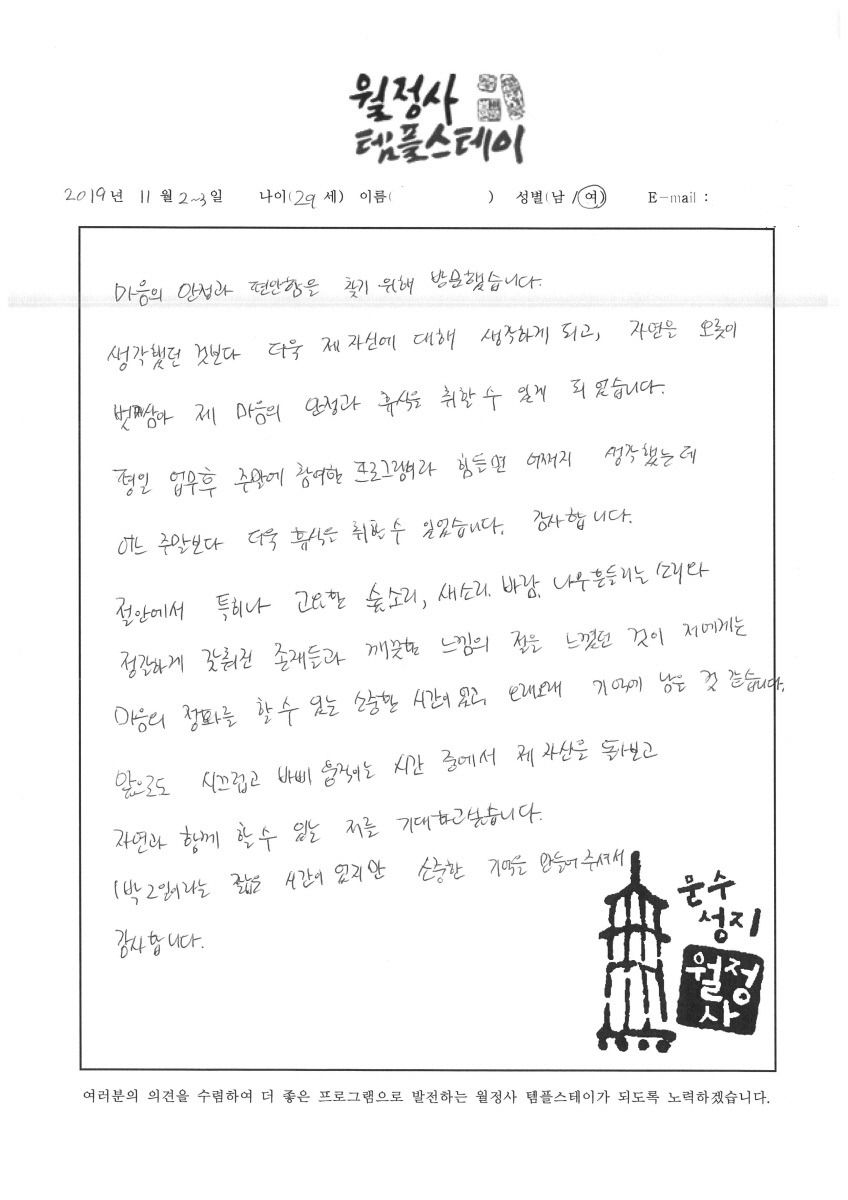 월정사
템플스테이
2019년 11월 2~3일 나이(29 세) 이름( ) 성별(남 /여) E-mail :
마음의 안정과 편안함을 찾기 위해 방문했습니다.
생각했던 것보다 더욱 제 자신에 대해 생각하게 되고, 자연을 오롯이
벗삼아 제 마음의 안정과 휴식을 취할 수 있게 되었습니다.
평일 업무후 주말에 참여한 프로그램이라 힘들면 어쩌지 생각했는데
어느 주말보다 더욱 휴식을 취할 수 있었습니다. 감사합니다.
절안에서 특히나 고요한 숲소리, 새소리, 바람, 나무흔들리는 소리와
정갈하게 갖춰진 존재들과 깨끗한 느낌의 절을 느꼈던 것이 저에게는
마음의 정화를 할 수 있는 소중한 시간이었고, 오래오래 기억에 남을 것 같습니다.
앞으로도 시끄럽고 바삐 움직이는 시간 중에서 제 자신을 돌아보고
자연과 함께 할 수 있는 저를 기대하고싶습니다.
1박 2일이라는 짧은 시간이었지만 소중한 기억을 만들어 주셔서
감사합니다.
문수
성지
월정
사
여러분의 의견을 수렴하여 더 좋은 프로그램으로 발전하는 월정사 템플스테이가 되도록 노력하겠습니다.